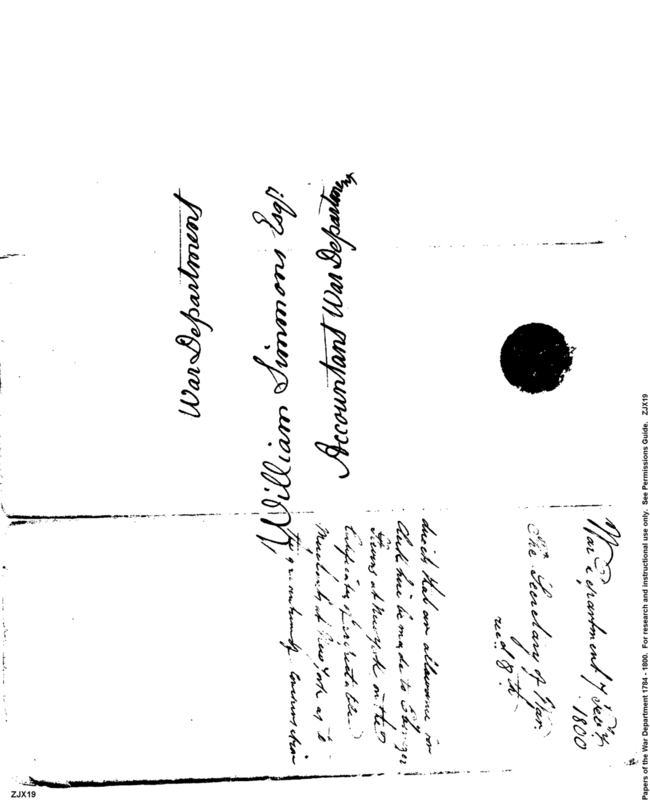 War Department
William Simmons Esqr.
Accountant War Department
War Department 7 Feby
1800
The Secretary of War
recd 8th
directs that an allowance for
Clerk hire be made to
Stevens at New York on the
Certificates of respectable
Merchants at New York as to
the customary Commission
Papers of the War Department 1784 - 1800. For research and instructional use only. See Permissions Guide. ZJX19
ZJX19